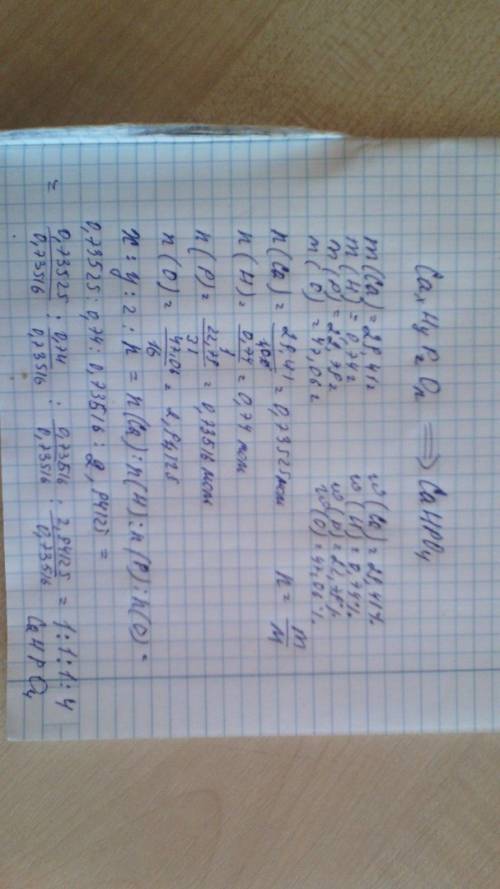 CaxHyPzOn ⟹ CaHPO4
m(Ca) = 29,41г ω(Ca) = 29,41%
m(H) = 0,74г ω(H) = 0,74%
m(P) = 22,78г ω(P) = 22,78%
m(O) = 47,06г ω(O) = 47,06%
n(Ca) = 29,41/40 = 0,73525 моль n = m/M
n(H) = 0,74/1 = 0,74 моль
n(P) = 22,78/31 = 0,73516 моль
n(O) = 47,06/16 = 2,94125
x : y : z : n = n(Ca) : n(H) : n(P) : n(O) =
0,73525 : 0,74 : 0,73516 : 2,94125 =
= 0,73525/0,73516 : 0,74/0,73516 : 0,73516/0,73516 : 2,94125/0,73516 = 1:1:1:4
CaHPO4